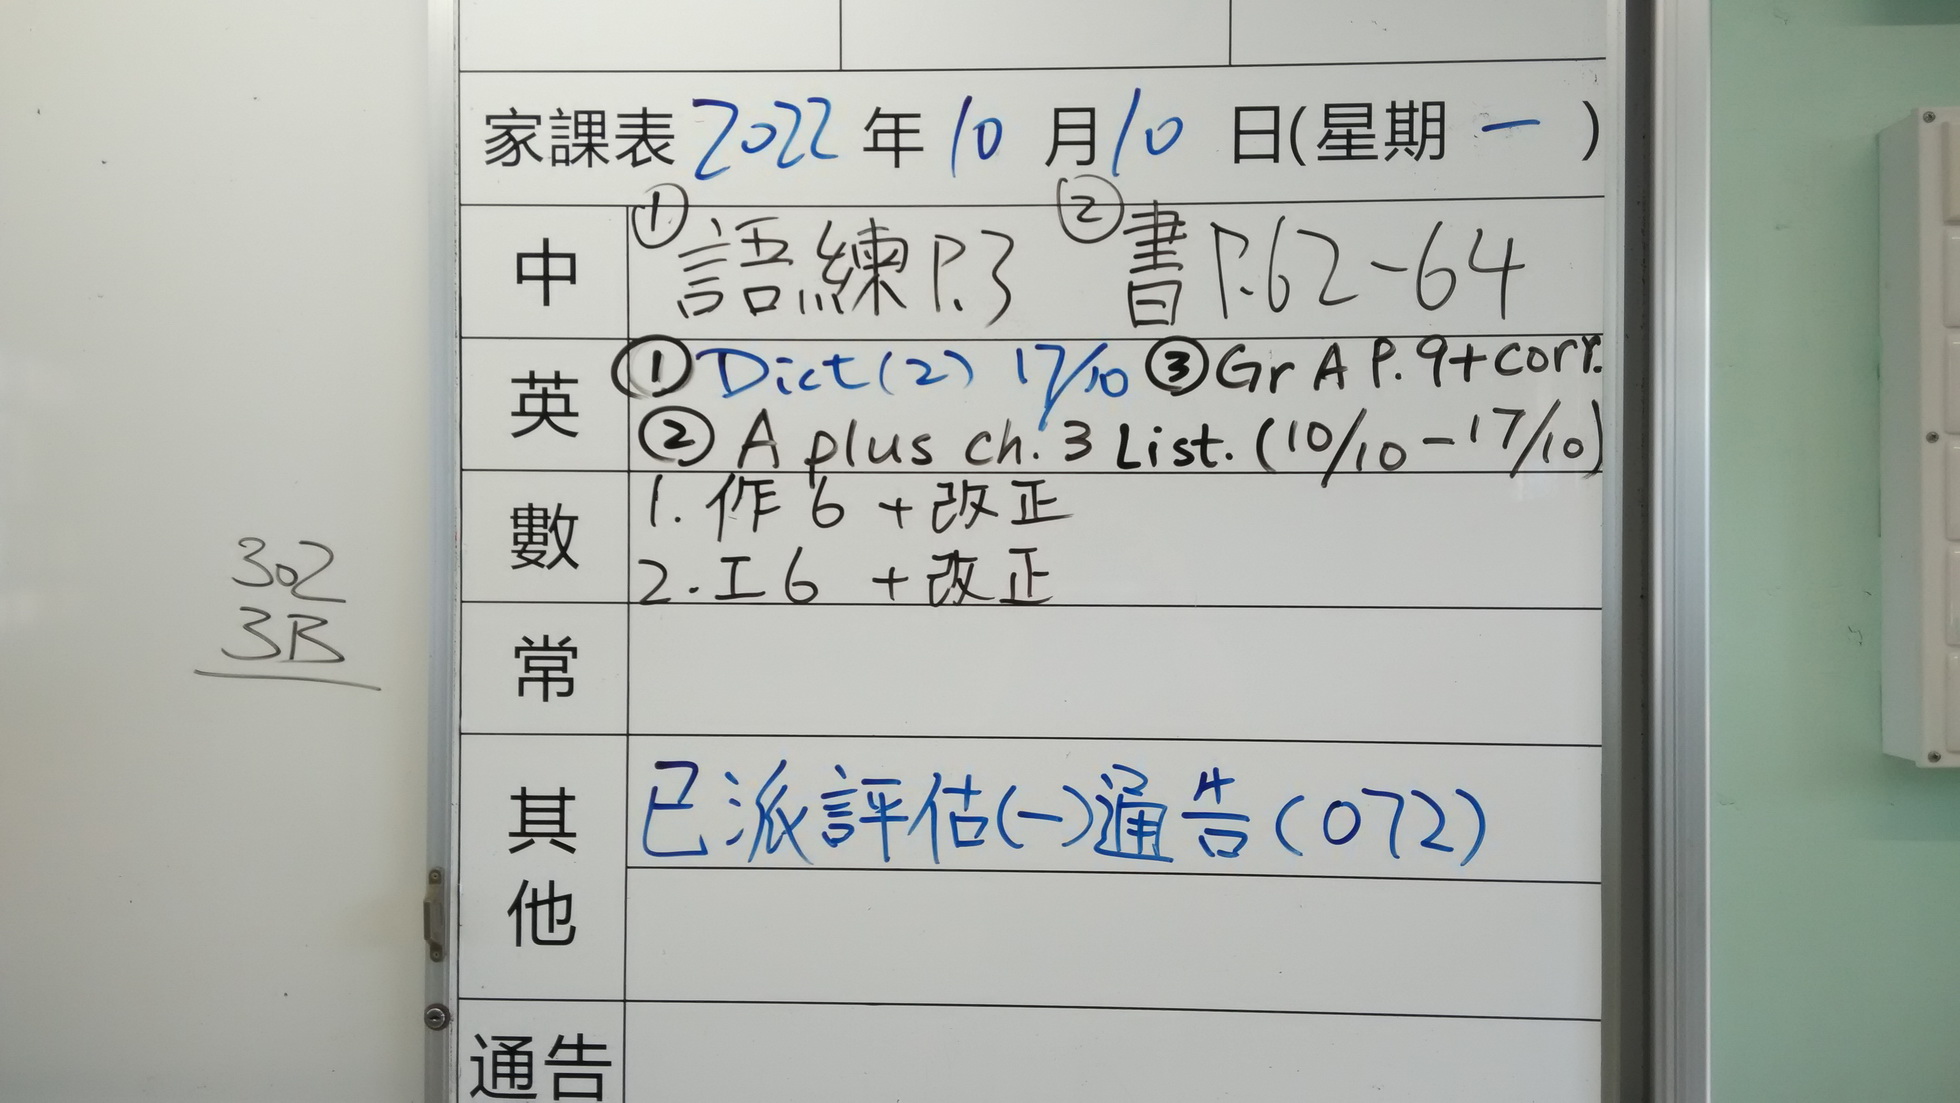 家課表 2022 年 10 月 10 日(星期 一 )
中 ① 語練 P.3 ② 書 P.62-64
英 ① Dict(2) 17/10 ③ Gr A P. 9+corr.
② A plus ch. 3 List. (10/10-17/10)
數 1. 作 6 + 改正
2. 工 6 + 改正
302
3B
常
其他 已派評估(一)通告(072)
通告